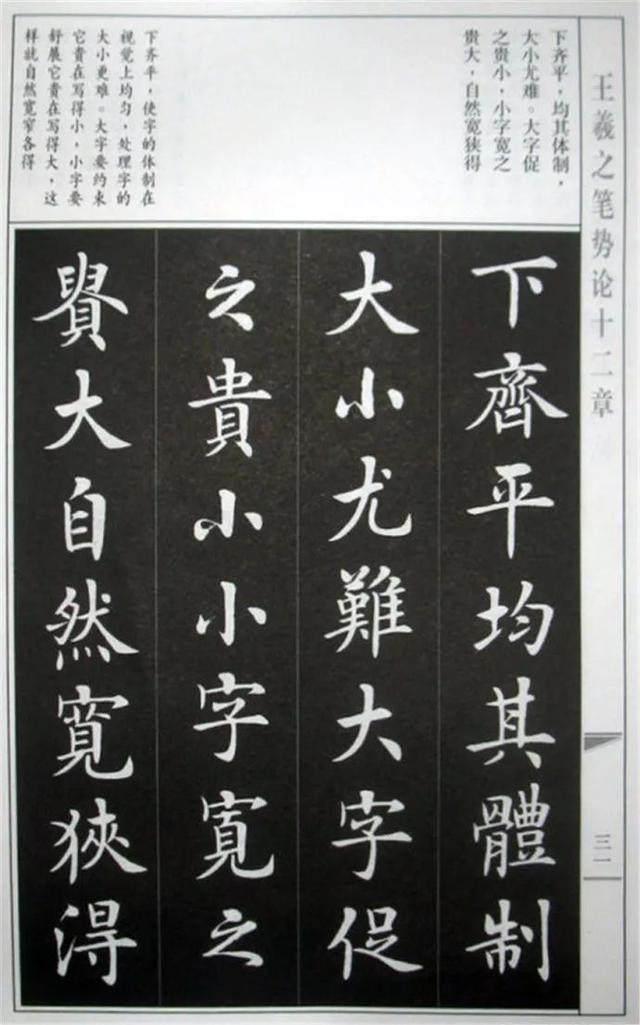 王羲之笔势论十二章
下齐平，均其体制，
大小尤难。大字促
之贵小，小字宽之
贵大，自然宽狭得
下齐平，使字的体制在
视觉上均匀，处理字的
大小更难。大字要约束
它贵在写得小，小字要
舒展它贵在写得大，这
样就自然宽窄各得
下齊平均其體制
大小尤難大字促
之貴小小字寬之
貴大自然寬狹得
三一